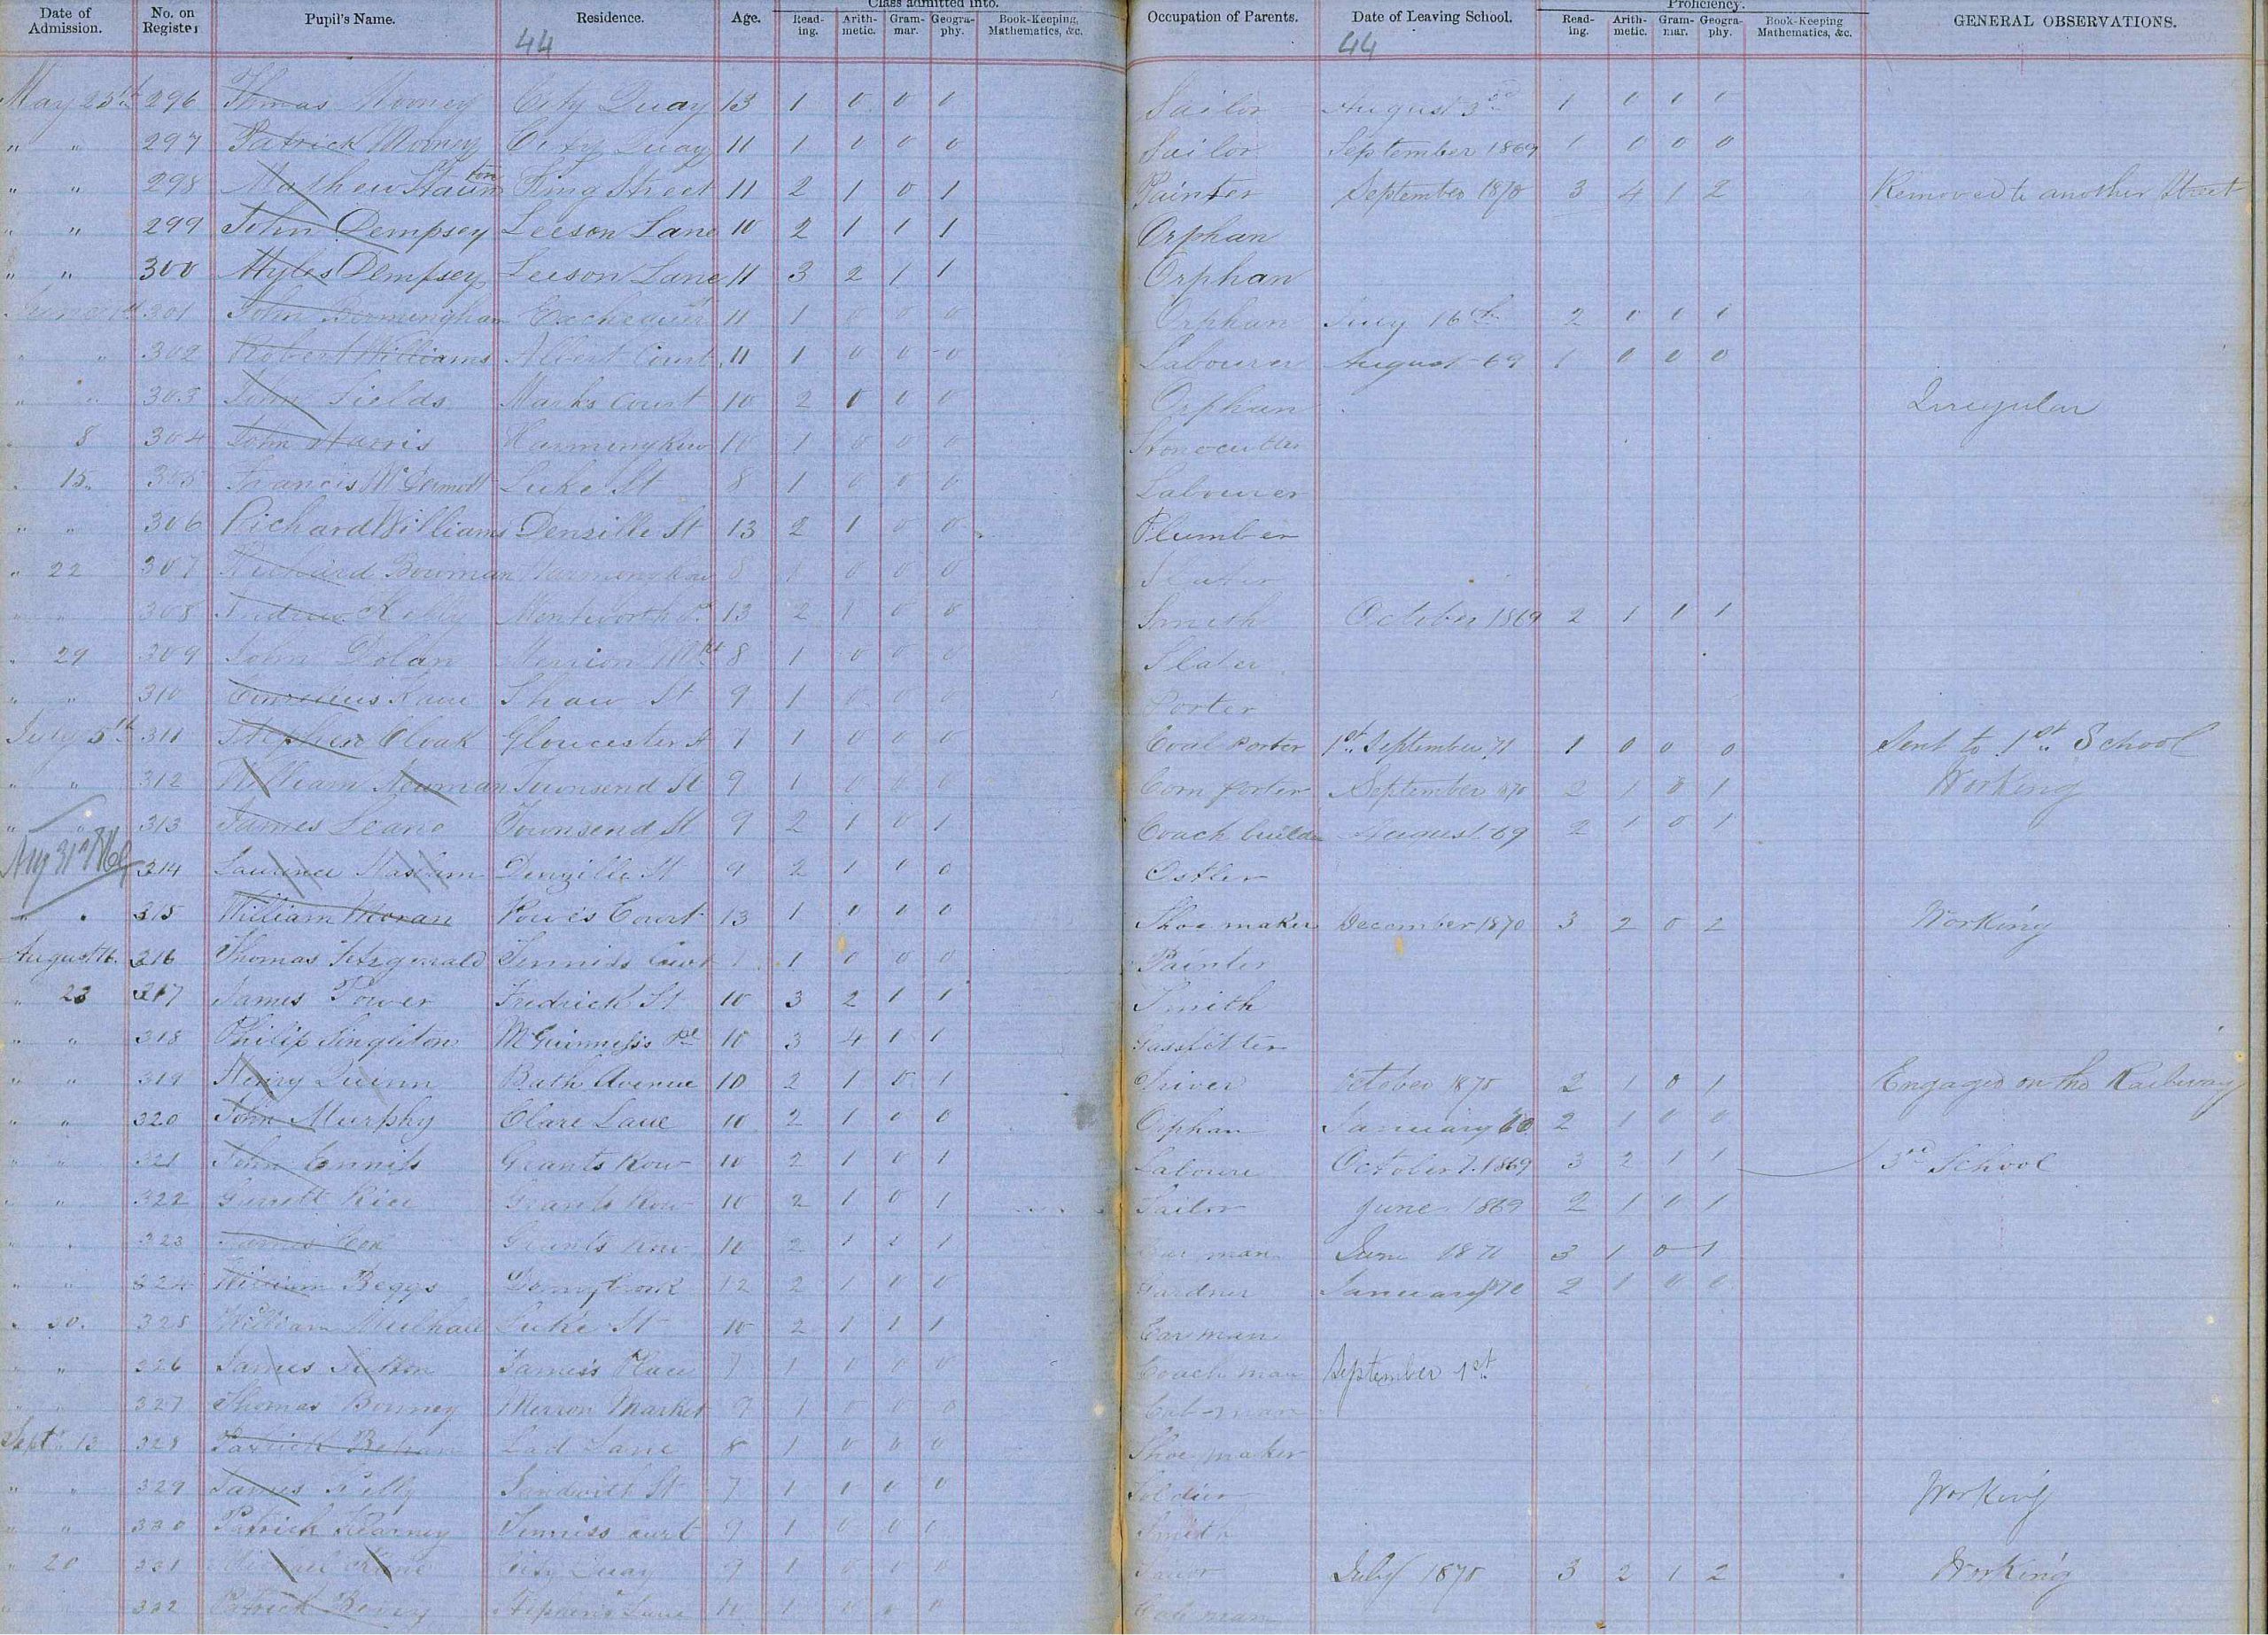 Date of Admission. No. on Register Pupil's Name. Residence. Age. Class admitted into. Read-ing. Arith-metic. Gram-mar. Geogra-phy. Book-Keeping, Mathematics, &c. Occupation of Parents. Date of Leaving School. Proficiency. Read-ing. Arith-metic. Gram-mar. Geogra-phy. Book-Keeping Mathematics, &c. GENERAL OBSERVATIONS.
44 44
May 23rd 296 Thomas Mooney City Quay 13 1 0 0 0 Sailor August 3rd 1 0 0
" " 297 Patrick Mooney City Quay 11 1 0 0 0 Sailor September 1869 1 0 0 0
" " 298 Mathew Staunton King Street 11 2 1 0 1 Painter September 1870 3 4 1 2 Removed to another Street
" " 299 John Dempsey Leeson Lane 10 2 1 1 1 Orphan
" " 300 Myles Dempsey Leeson Lane 11 3 2 1 1 Orphan
301 John Bermingham 11 1 0 0 0 Orphan July 16th 2
" " 302 Robert Williams Albert Court 11 1 0 0 0 Labourer August 69 1 0 0 0
" " 303 John Fields Marks Court 10 2 0 0 Orphan Irregular
" 8 304 John Harris Harmony Row 10 1 0 0 0 Stonecutter
" 15 305 Francis McDermott Luke St 8 1 0 0 0 Labourer
" " 306 Richard Williams Denzille St 13 2 1 0 0 Plumber
" 22 307 Richard Bowman Harmony Row 8 1 0 0 0 Slater
" " 308 Andrew Kelly Wentworth Pl 13 2 1 0 0 Smith October 1869 2 1 1
" 29 309 John Dolan Merrion Mkt 8 1 0 0 0 Slater
" " 310 Cornelius Kane Shaw St 9 1 0 0 0 Porter
July 5th 311 Stephen Cloak Gloucester St 7 1 0 0 0 Coal Porter 1st September 71 1 0 0 0 Sent to 1st School
" " 312 William Newman Townsend St 9 1 0 0 0 Corn porter September 1870 2 1 0 1 Working
" " 313 James Leane Townsend St 9 2 1 0 1 Coach builder August 69 2 1 0 1
Aug 31st 1869 314 Laurence Haslam Denzille St 9 2 1 0 0 Ostler
" " 315 William Moran Powe's Court 13 1 0 0 0 Shoe maker December 1870 3 2 0 2 Working
August 16. 316 Thomas Fitzgerald Tenniss Court 1 0 0 0 Painter
" 23 317 James Power Fredrick St 10 3 2 1 1 Smith
" " 318 Philip Singleton McGuinness's Pl 10 3 4 1 1 Gassfitter
" " 319 Henry Quinn Bath Avenue 10 2 1 0 1 Driver October 1870 2 1 0 1 Engaged on the Railway
" " 320 John Murphy Clare Lane 10 2 1 0 0 Orphan January 2 1 0 0
" " 321 John Ennis Grants Row 10 2 1 0 1 Laboure October 7. 1869 3 2 1 1 3rd School
" " 322 Garrett Rice Grants Row 10 2 1 0 1 Sailor June 1869 2 1 0 1
" " 323 James Cox Grants Row 10 2 1 1 Car man June 187 3 1 0 1
" " 324 William Beggs Donnybrook 12 2 1 0 0 Gardner January 1870 2 1 0 0
" 30. 325 William Mulhall Luke St 10 2 1 1 1 Carman
" " 326 James Sutton James's Place 7 1 0 0 0 Coach man September 1st
" " 327 Thomas Binney Merron Market 9 1 0 0 0 Cab-man
Sept 13 328 Patrick Behan Lad Lane 8 1 0 0 0 Shoe maker
" " 329 James Kelly Sandwith St 7 1 1 0 0 Soldier Working
" " 330 Patrick Kearney Tenniss Court 9 1 0 0 0 Smith
" 20 331 Michael Kane City Quay 9 1 0 0 July 1870 3 2 1 2 Working
" 332 Patrick Stephen's Lane 1 Cab man